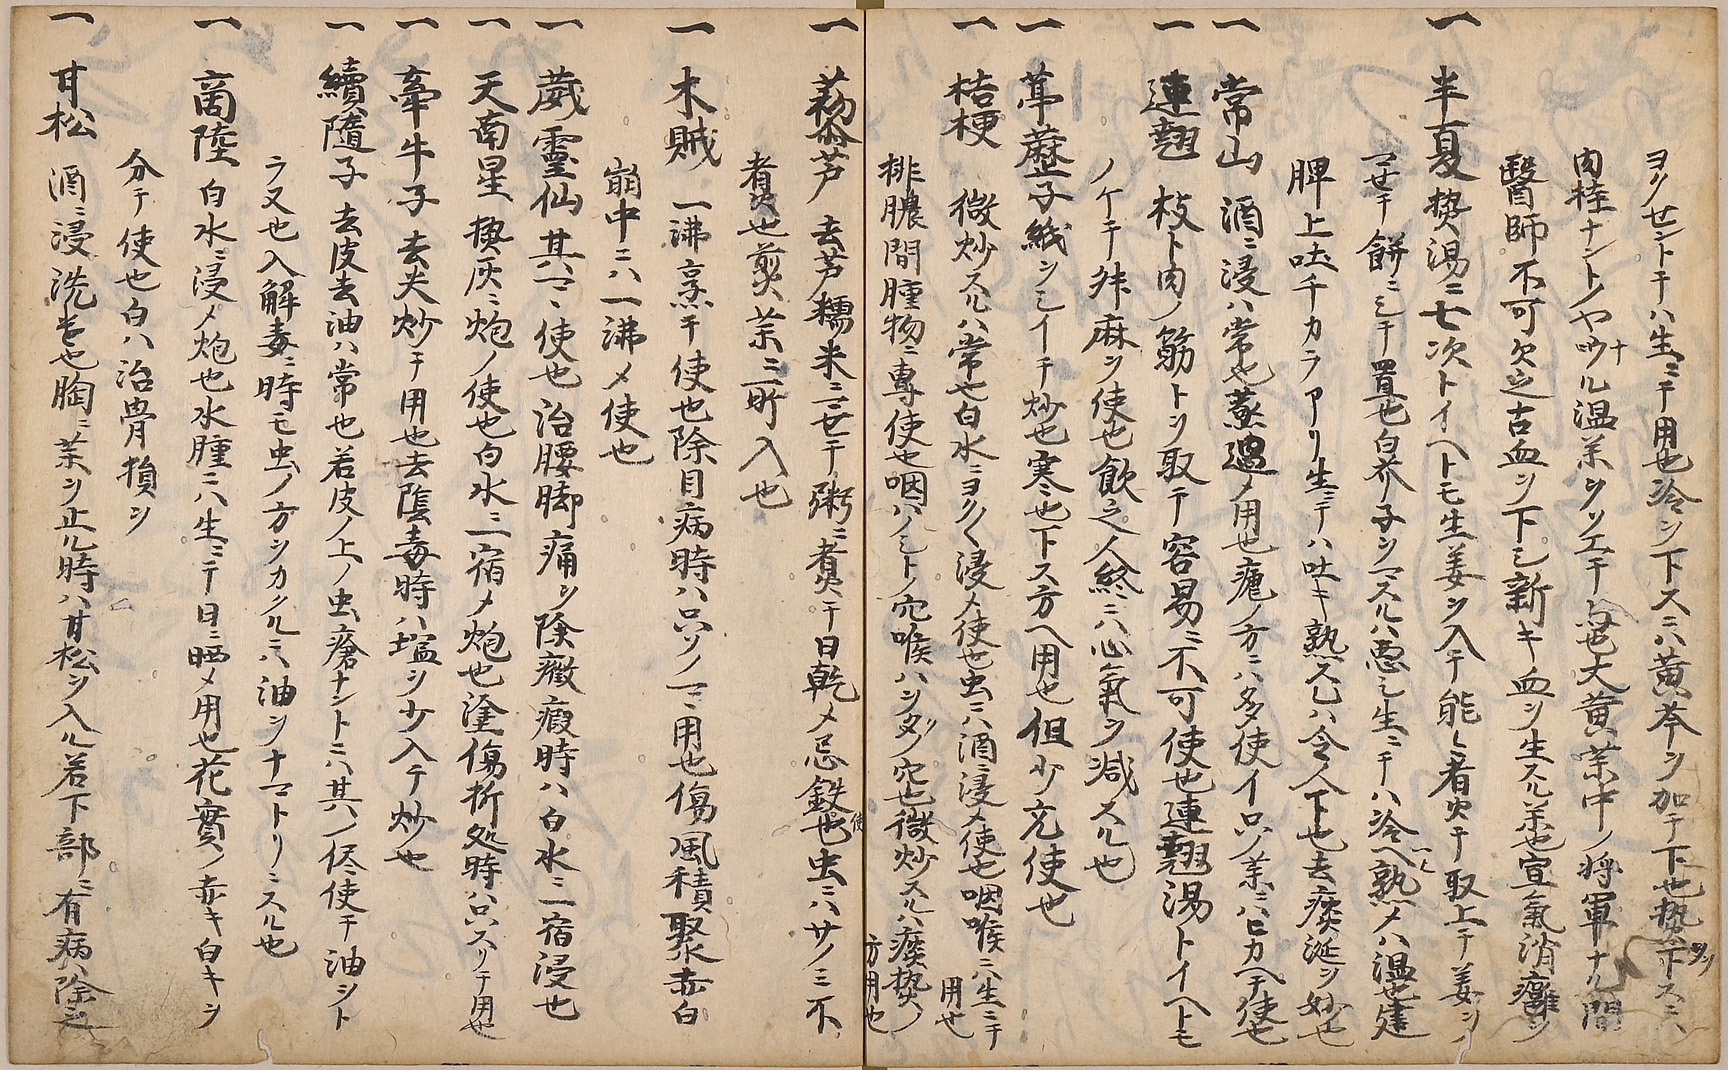 ヨクせントテハ生ニテ用也冷ヲ下スニハ黄芩ヲ加テ下也熱ヲ下スニハ
肉桂ナントノヤウナル温薬ヲソエテ与也大黄薬中ノ将軍ナル間
醫師不可欠之古血ヲ下シ新キ血ヲ生スル薬也宣氣消癰ヲ
一 半夏 熱湯ニ七次トイヘトモ生姜ヲ入テ能々煮テ取上テ姜ヲ
マせテ餅ニシテ置也白芥子ヲマスルハ悪シ生ニテハ冷ヘ熟メハ温也建
脾上吐下カラアリ生ニテハ吐キ熟スレハ令人下也去痰涎ヲ妙也
一 常山 酒ニ浸ハ常也蒸過メ用也瘧ノ方ニハ多使イロノ薬ニハヒカヘテ使也
一 連翹 枝ト肉ノ筋トヲ取テ容易ニ不可使也連翹湯トイヘトモ
ノケテ升麻ヲ使也飲之人終ニハ心氣ヲ減スル也
一 葶藶子 紙ヲシイテ炒也寒也下ス方ヘ用也但少充使也
一 桔梗 微炒スルハ常也白水ニヨクヨク浸メ使也虫ニハ酒ニ浸メ使也咽喉ニハ生ニテ用也
排膿間腫物ニ專使也咽ハノミトノ穴喉ハシタノ穴也微炒スルハ痰熱ノ方用也
一 藜芦 去芦糯米ニマせテ粥ニ煮テ日乾メ忌鉄也虫ニハサノミ不使
煮也煎薬ニ一町入也
一 木賊 一沸烹テ使也除目病時ハ只ソノマヽ用也傷風積聚赤白
崩中ニハ一沸メ使也
一 葳霊仙 其マヽ使也治腰脚痛ヲ除癥瘕時ハ白水ニ一宿浸也
一 天南星 熱灰ニ炮メ使也白水ニ一宿メ炮也塗傷折処時ハ只スリテ用也
一 牽牛子 去尖炒テ用也去陰毒時ハ塩ヲ少入テ炒也
一 續隨子 去皮去油ハ常也若皮ノ上ノ虫瘡ナントニハ其ノ侭使テ油ヲト
ラヌ也入解毒ニ時モ虫ノ方ヲカクルニハ油ヲナマトリニスル也
一 商陸 白水ニ浸メ炮也水腫ニハ生ニテ日ニ晒メ用也花實ノ赤キ白キヲ
分テ使也白ハ治骨損ヲ
一 甘松 酒ニ浸洗者也胸ニ薬ヲ止ル時ハ甘松ヲ入ル若下部ニ有病ハ除之